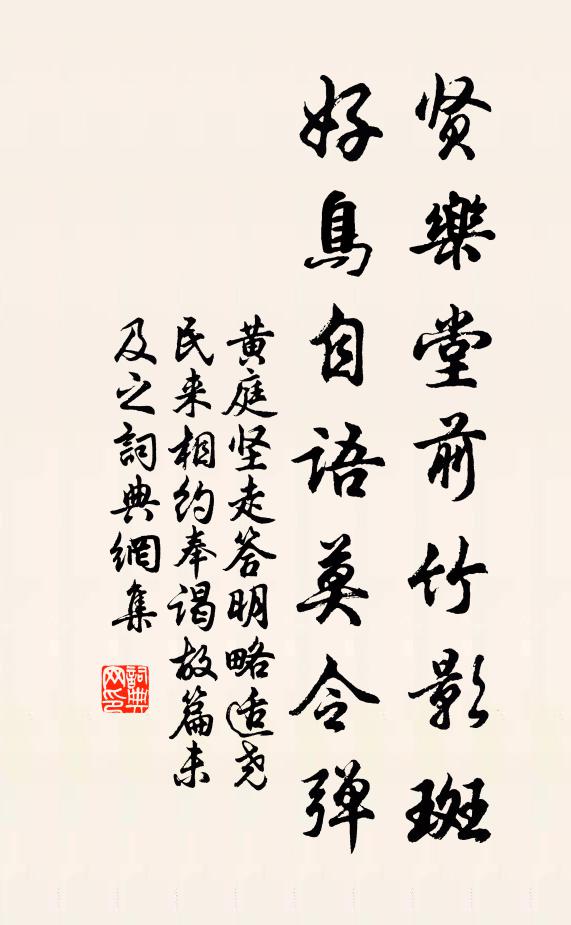 贤樂堂前竹影斑
好鳥自语莫令弹
黄庭坚走答明略适尧
民来相约奉谒故篇末
及之詞典網集
詞典网印